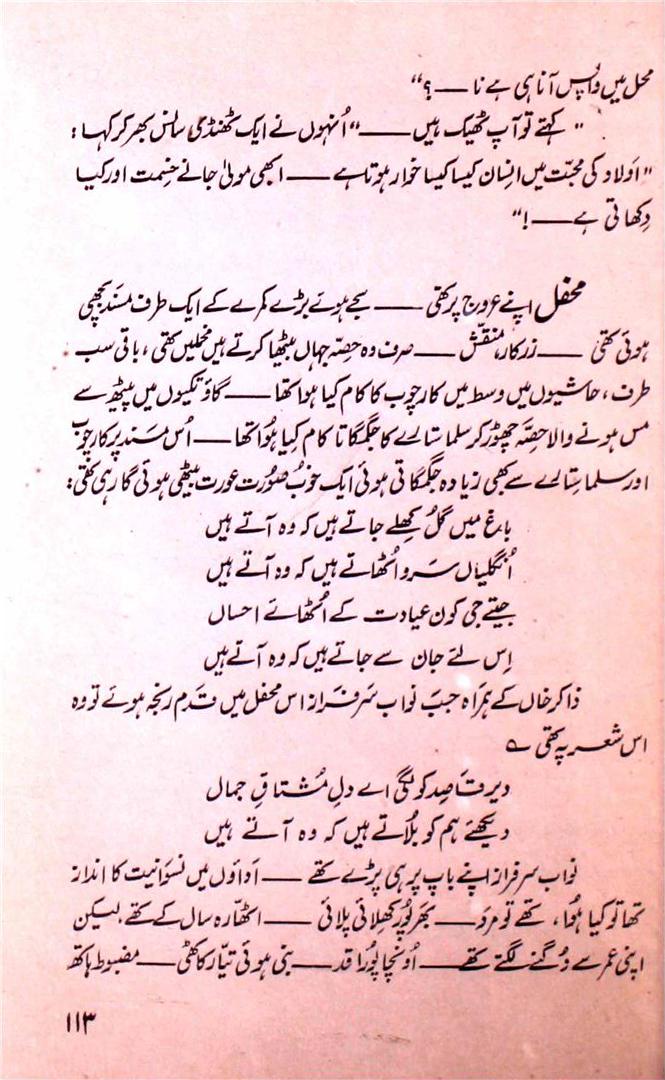 محل میں واپس آنا ہی ہے نا ——؟“
” کہتے تو آپ ٹھیک ہیں ——“ اُنہوں نے ایک ٹھنڈی سانس بھر کر کہا:
” اَولاد کی محبّت میں انسان کیسا کیسا خوار ہوتا ہے —— ابھی مولیٰ جانے قسمت اور کیا
دِکھاتی ہے ——!“
محفل اپنے عروج پر تھی —— سجے ہوئے بڑے کمرے کے ایک طرف مسند بچھی
ہوئی تھی —— زرکار، منقّش —— صرف وہ حصّہ جہاں بیٹھا کرتے ہیں مخملیں تھی، باقی سب
طرف، حاشیوں میں وسط میں کارچوب کا کام کیا ہوا تھا —— گاؤ تکیوں میں پیٹھ سے
مس ہونے والا حصّہ چھوڑ کر سلما ستارے کا جگمگاتا کام کیا ہُوا تھا —— اُس مَسند پر کارچوب
اور سلما سِتارے سے بھی زیادہ جگمگاتی ہوئی ایک خوبصُورت عورت بیٹھی ہوئی گا رہی تھی:
باغ میں گُل کِھلے جاتے ہیں کہ وہ آتے ہیں
اُنگلیاں سَرو اُٹھاتے ہیں کہ وہ آتے ہیں
جیتے جی کون عیادت کے اُٹھائے احساں
اِس لئے جان سے جاتے ہیں کہ وہ آتے ہیں
ذاکر خاں کے ہمراہ جب نواب سَرفراز اس محفل میں قدم رنجہ ہوئے تو وہ
اس شعر پہ تھی ؎
دیر قاصِد کو لگی اے دلِ مُشتاقِ جمال
دیکھئے ہم کو بُلاتے ہیں کہ وہ آتے ہیں
نواب سرفراز اپنے باپ پر ہی پڑے تھے —— اَداؤں میں نسوانیت کا انداز
تھا تو کیا ہُوا، تھے تو مرد —— بھرپُور کھلائی پلائی —— اٹھّارہ سال کے تھے، لیکن
اپنی عمر سے دُگنے لگتے تھے —— اُونچا پُورا قد —— بنی ہوئی تیّار کاٹھی —— مضبوط ہاتھ
۱۱۳